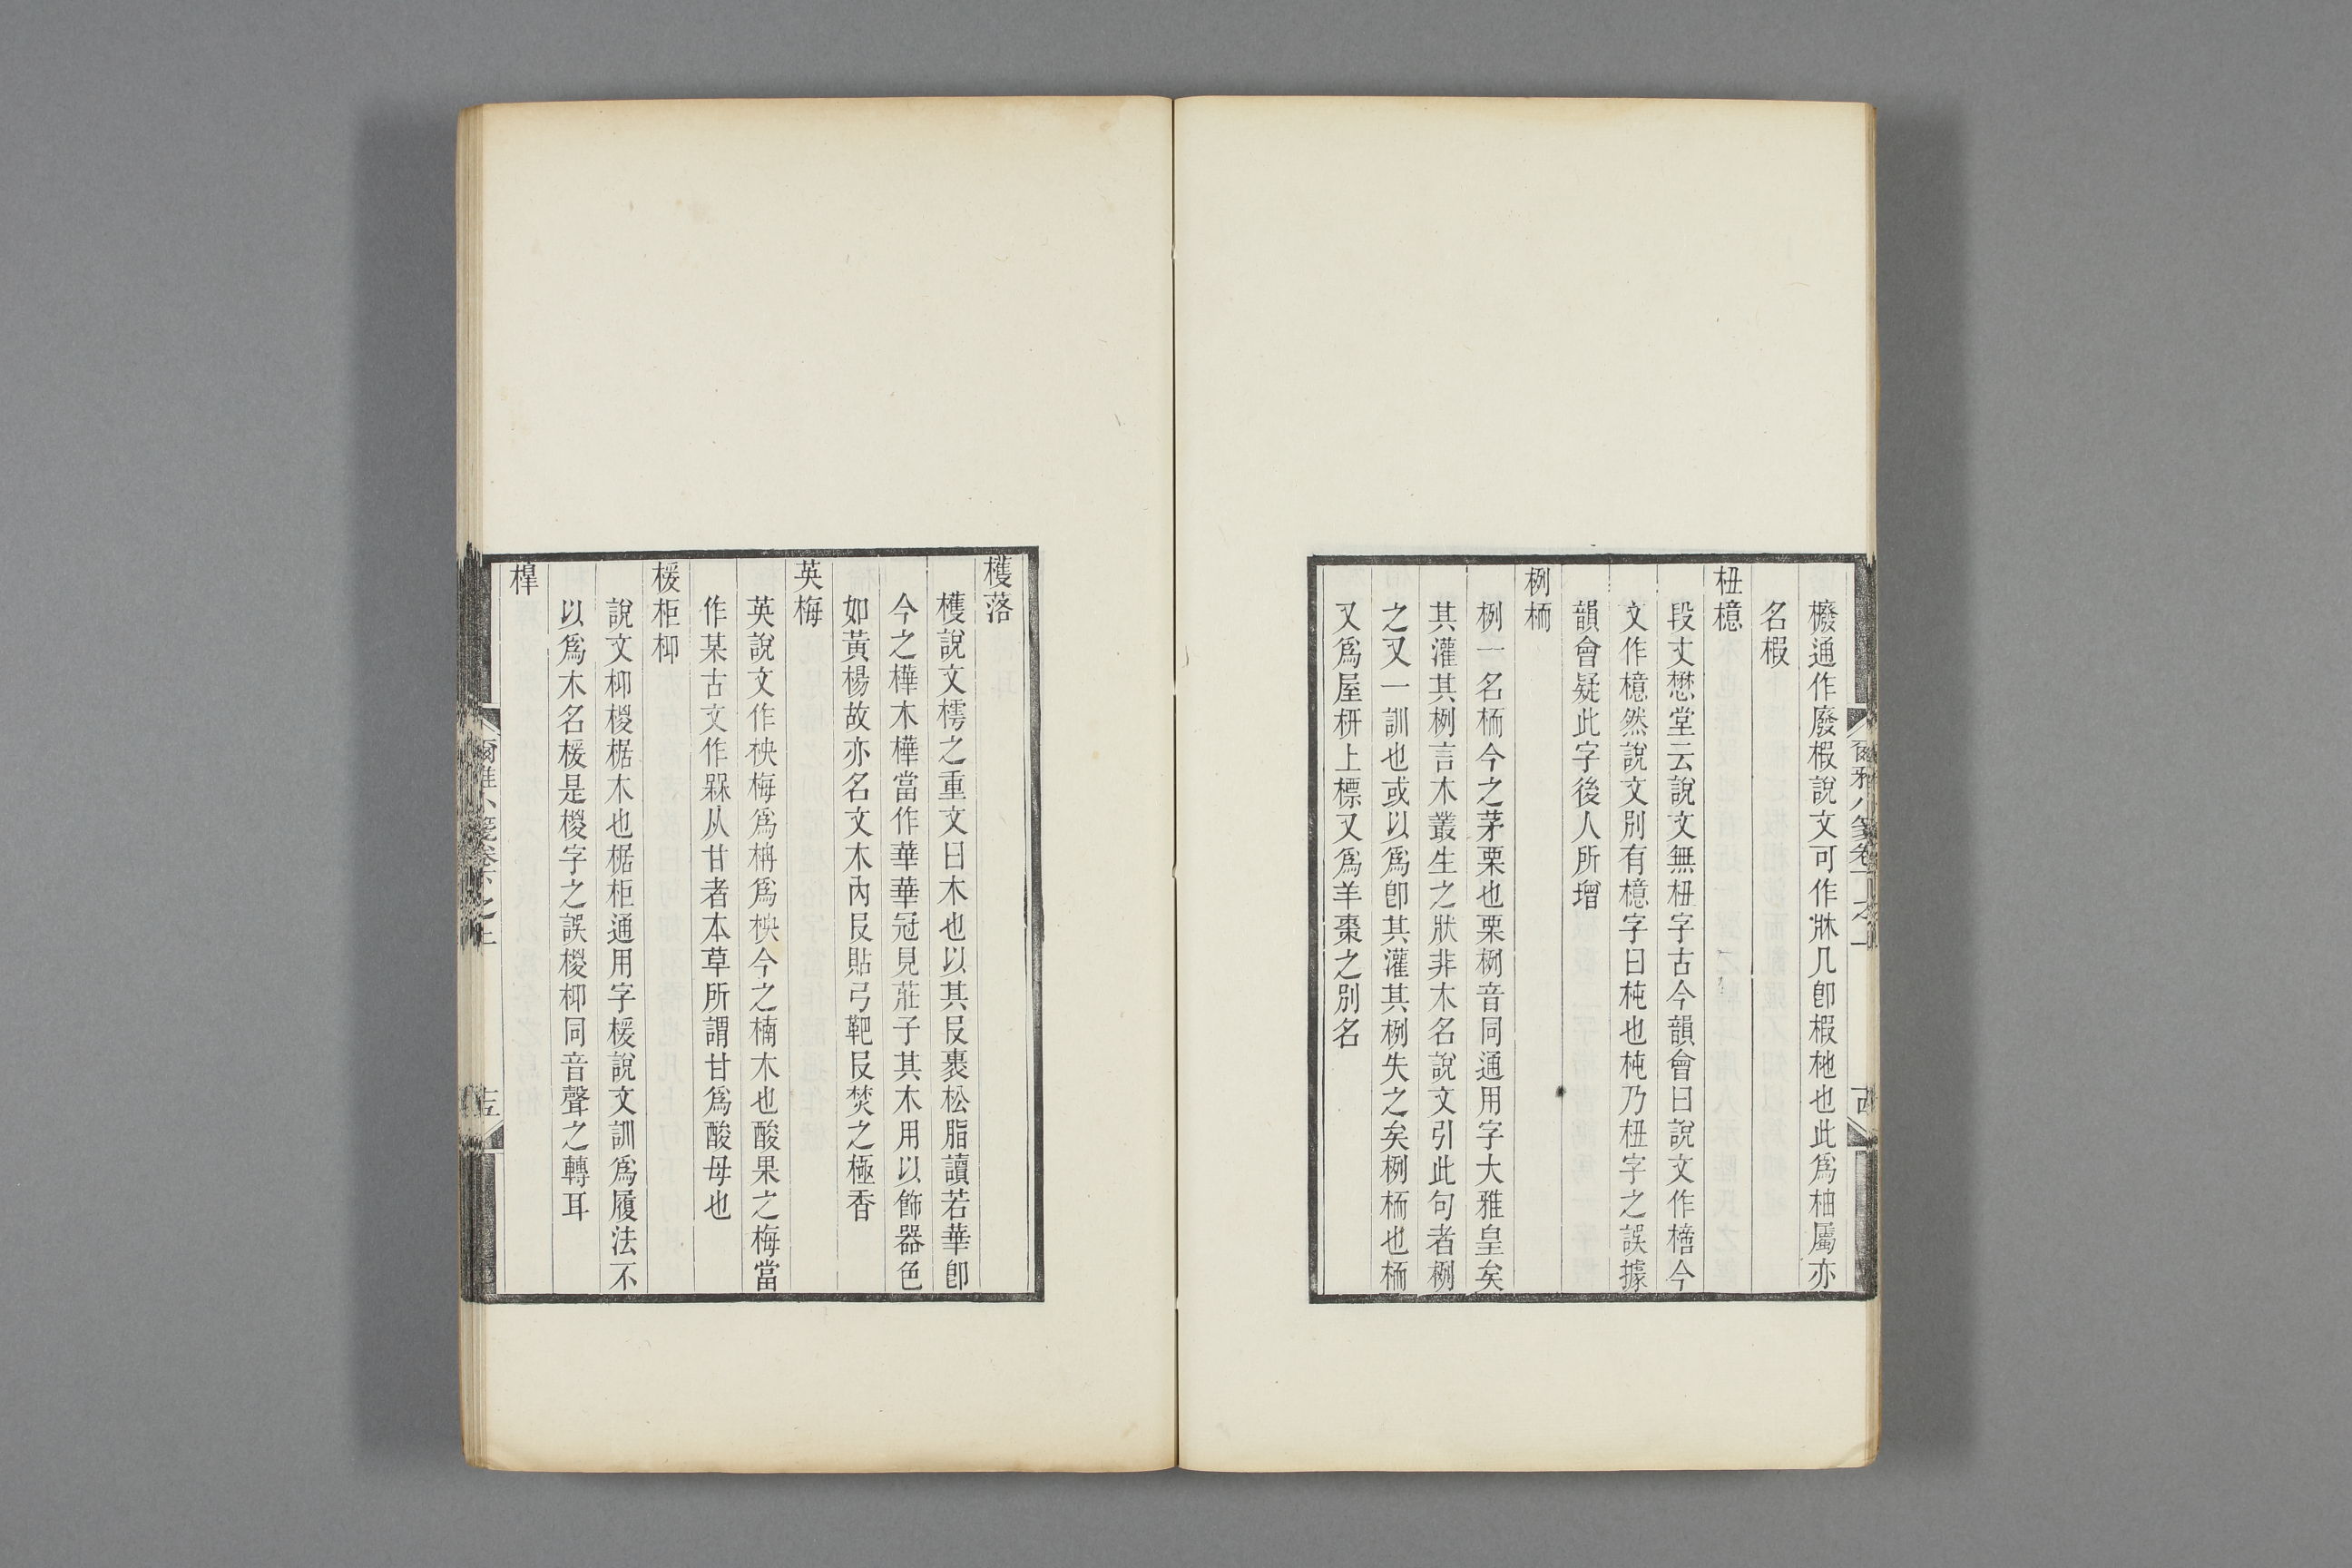 櫠通作廢椵說文可作牀几卽椵柂也此爲柚屬亦
名椵
杻檍
段丈懋堂云說文無杻字古今韻會曰說文作㯖今
文作檍然說文別有檍字曰杶也杶乃杻字之誤據
韻會疑此字後人所增
栵栭
栵一名栭今之茅栗也栗栵音同通用字大雅皇矣
其灌其栵言木叢生之狀非木名說文引此句者栵
之又一訓也或以爲卽其灌其栵失之矣栵栭也栭
又爲屋枅上標又爲羊棗之別名
檴落
檴說文樗之重文曰木也以其皮裹松脂讀若華卽
今之樺木樺當作華華冠見莊子其木用以飾器色
如黃楊故亦名文木內皮貼弓靶皮焚之極香
英梅
英說文作柍梅爲柟爲柍今之楠木也酸果之梅當
作某古文作槑从甘者本草所謂甘爲酸母也
楥柜桺
說文桺椶椐木也椐柜通用字楥說文訓爲履法不
以爲木名楥是椶字之誤椶桺同音聲之轉耳
楎
爾雅小箋卷下之上
十五